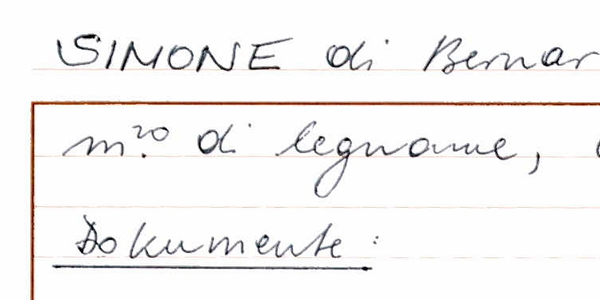 SIMONE di Bernar
m.ro di legname,
Dokumente: